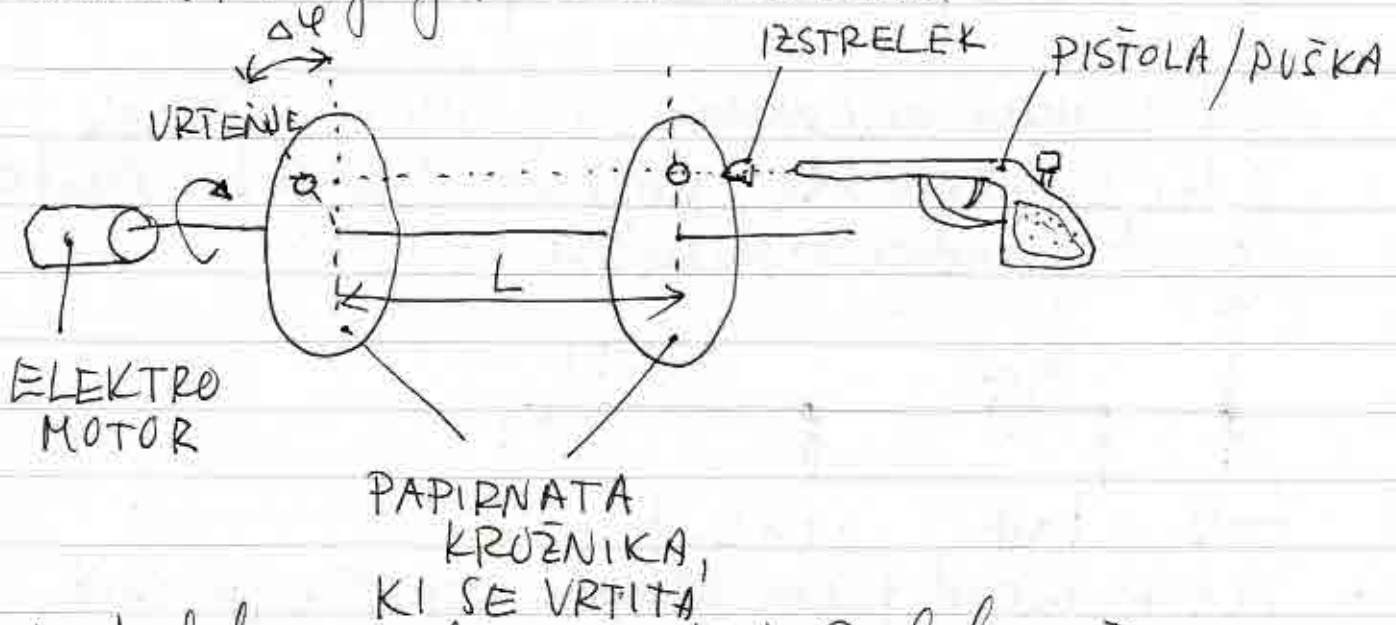 Δφ
IZSTRELEK
PIŠTOLA / PUŠKA
VRTENJE
L
ELEKTRO
MOTOR
PAPIRNATA
KROŽNIKA,
KI SE VRTITA